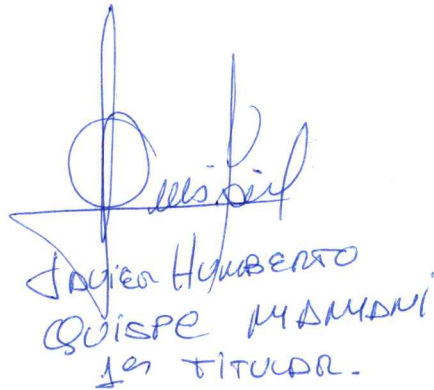 JAVIER HUMBERTO
QUISPE MAMANI
1er TITULAR.